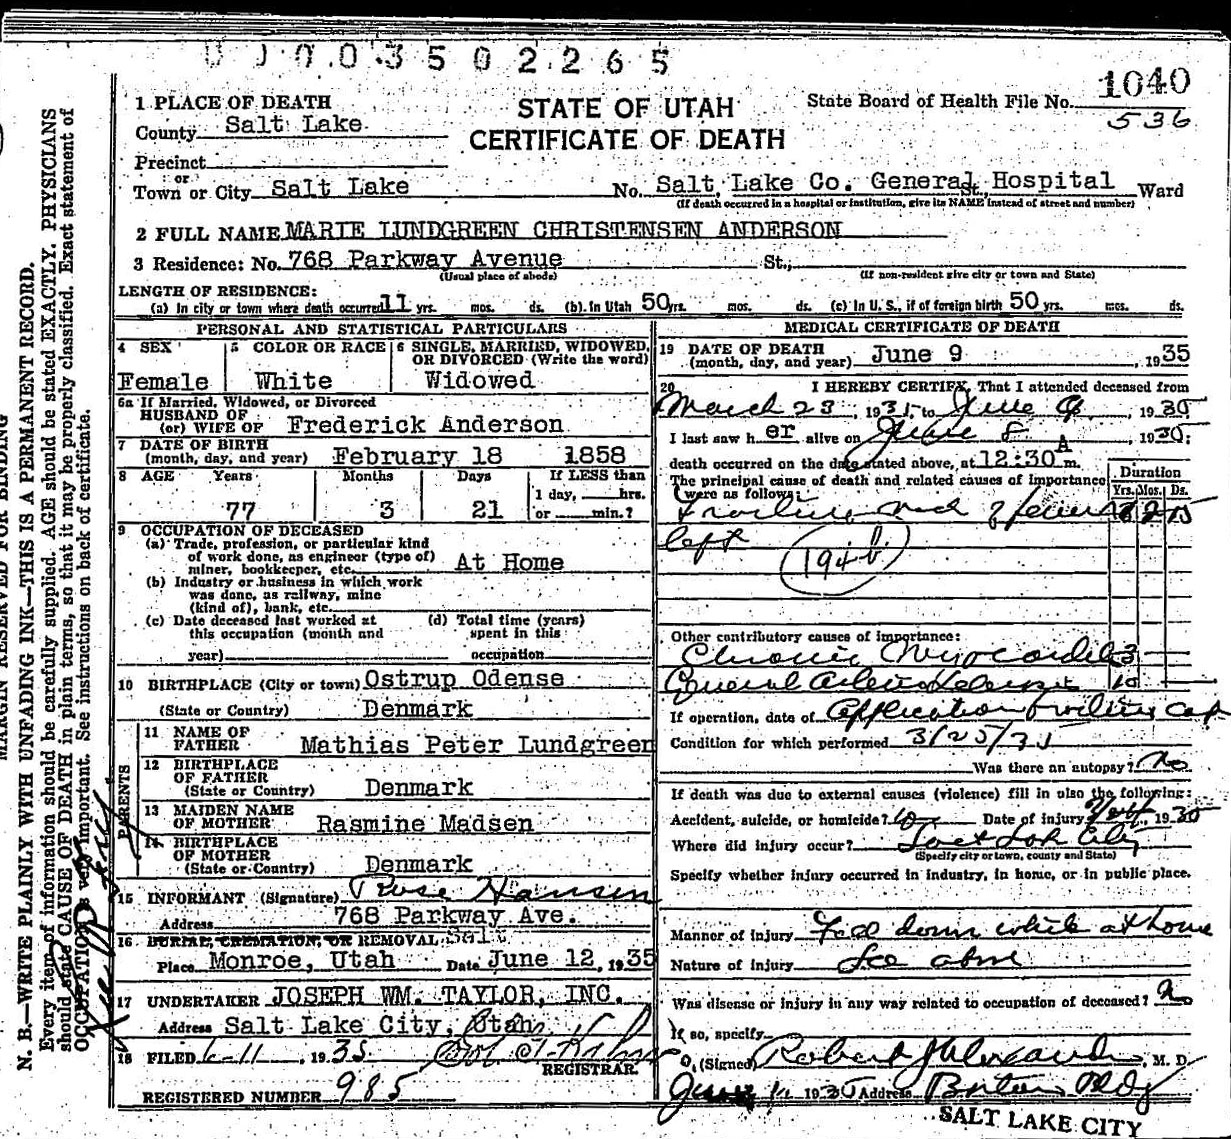 0 0 0 3 5 0 2 2 6 5
1040
536
State Board of Health File No.
STATE OF UTAH
CERTIFICATE OF DEATH
1 PLACE OF DEATH
County Salt Lake
Precinct
or
Town or City Salt Lake No. Salt Lake Co. General Hospital St. Ward
(If death occurred in a hospital or institution, give its NAME instead of street and number)
2 FULL NAME MARIE LUNDGREEN CHRISTENSEN ANDERSON
3 Residence: No. 768 Parkway Avenue St.,
(Usual place of abode) (If non-resident give city or town and State)
LENGTH OF RESIDENCE:
(a) In city or town where death occurred 11 yrs. mos. ds. (b) In Utah 50 yrs. mos. ds. (c) In U. S., if of foreign birth 50 yrs. mos. ds.
PERSONAL AND STATISTICAL PARTICULARS
4 SEX Female
5 COLOR OR RACE White
6 SINGLE, MARRIED, WIDOWED, OR DIVORCED (Write the word) Widowed
6a If Married, Widowed, or Divorced
HUSBAND OF
(or) WIFE OF Frederick Anderson
7 DATE OF BIRTH
(month, day, and year) February 18 1858
8 AGE Years Months Days If LESS than
1 day, hrs.
77 3 21 or min.?
9 OCCUPATION OF DECEASED
(a) Trade, profession, or particular kind
of work done, as engineer (type of)
miner, bookkeeper, etc. At Home
(b) Industry or business in which work
was done, as railway, mine
(kind of), bank, etc.
(c) Date deceased last worked at
this occupation (month and
year)
(d) Total time (years)
spent in this
occupation
10 BIRTHPLACE (City or town) Ostrup Odense
(State or Country) Denmark
PARENTS
11 NAME OF
FATHER Mathias Peter Lundgreen
12 BIRTHPLACE
OF FATHER
(State or Country) Denmark
13 MAIDEN NAME
OF MOTHER Rasmine Madsen
14 BIRTHPLACE
OF MOTHER
(State or Country) Denmark
15 INFORMANT (Signature) Rose Hansen
Address 768 Parkway Ave.
16 BURIAL, CREMATION, OR REMOVAL
Place Monroe, Utah Date June 12, 1935
17 UNDERTAKER JOSEPH WM. TAYLOR, INC.
Address Salt Lake City, Utah
18 FILED 6-11, 1935
REGISTRAR.
REGISTERED NUMBER 985
MEDICAL CERTIFICATE OF DEATH
19 DATE OF DEATH
(month, day, and year) June 9, 1935
20 I HEREBY CERTIFY, That I attended deceased from
March 23, 193 to June 9, 193
I last saw h er alive on June 8, 193;
death occurred on the date stated above, at 12:30 A m.
The principal cause of death and related causes of importance
were as follows:
Duration
Yrs. Mos. Ds.
Fracture neck of femur 2 15
left
(194b)
Other contributory causes of importance:
Chronic Myocarditis 3
General Arteriosclerosis 10
If operation, date of Application
Condition for which performed 3/25/3
Was there an autopsy? No
If death was due to external causes (violence) fill in also the following:
Accident, suicide, or homicide? Date of injury, 193
Where did injury occur? Salt Lake City
(Specify city or town, county and State)
Specify whether injury occurred in industry, in home, or in public place.
Manner of injury Fell down while at home
Nature of injury See above
Was disease or injury in any way related to occupation of deceased? No
If so, specify
(Signed) Robert J Alexander, M. D.
June 11 193 Address Boston Bldg
SALT LAKE CITY
MARGIN RESERVED FOR BINDING
N. B.—WRITE PLAINLY WITH UNFADING INK—THIS IS A PERMANENT RECORD.
Every item of information should be carefully supplied. AGE should be stated EXACTLY. PHYSICIANS
should state CAUSE OF DEATH in plain terms, so that it may be properly classified. Exact statement of
OCCUPATION is very important. See instructions on back of certificate.